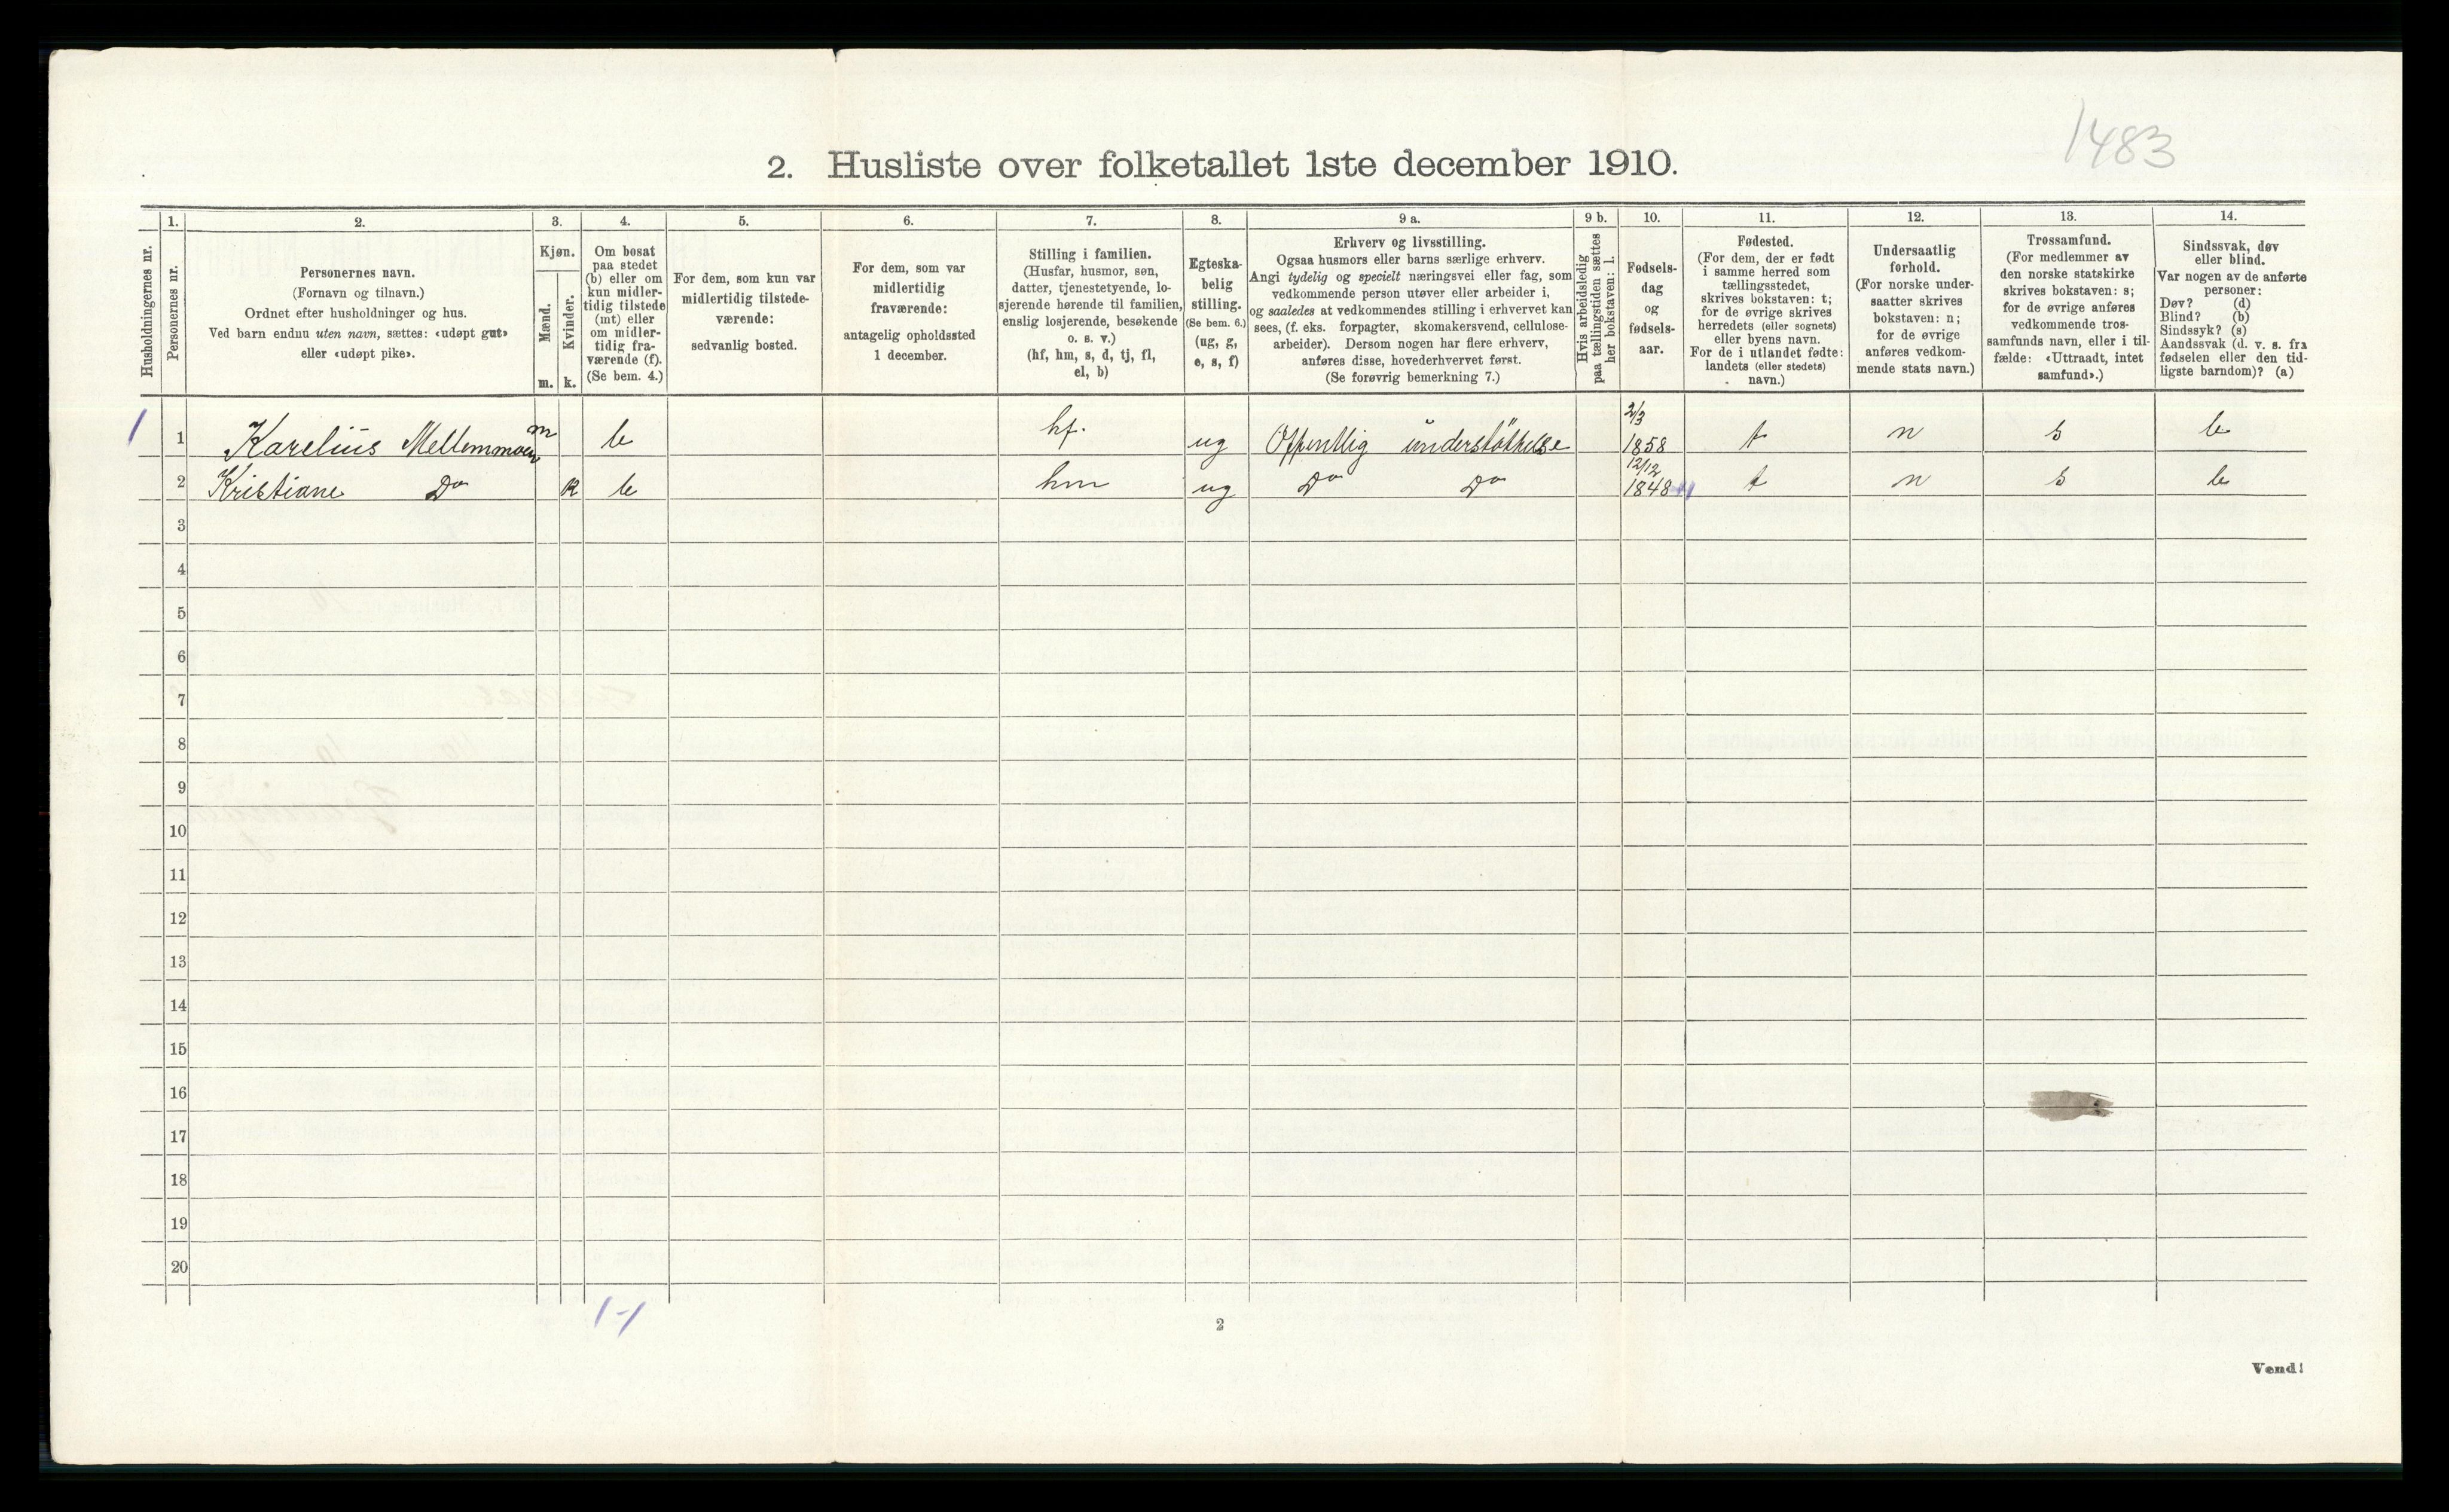 1483
2. Husliste over folketallet 1ste december 1910.
Husholdningernes nr.
1.
Personernes nr.
2.
Personernes navn.
(Fornavn og tilnavn.)
Ordnet efter husholdninger og hus.
Ved barn endnu uten navn, sættes: «udøpt gut»
eller «udøpt pike».
3.
Kjøn.
Mænd.
m.
Kvinder.
k.
4.
Om bosat
paa stedet
(b) eller om
kun midler-
tidig tilstede
(mt) eller
om midler-
tidig fra-
værende (f).
(Se bem. 4.)
5.
For dem, som kun var
midlertidig tilstede-
værende:
sedvanlig bosted.
6.
For dem, som var
midlertidig
fraværende:
antagelig opholdssted
1 december.
7.
Stilling i familien.
(Husfar, husmor, søn,
datter, tjenestetyende, lo-
sjerende hørende til familien,
enslig losjerende, besøkende
o. s. v.)
(hf, hm, s, d, tj, fl,
el, b)
8.
Egteska-
belig
stilling.
(Se bem. 6.)
(ug, g,
e, s, f)
9 a.
Erhverv og livsstilling.
Ogsaa husmors eller barns særlige erhverv.
Angi tydelig og specielt næringsvei eller fag, som
vedkommende person utøver eller arbeider i,
og saaledes at vedkommendes stilling i erhvervet kan
sees, (f. eks. forpagter, skomakersvend, cellulose-
arbeider). Dersom nogen har flere erhverv,
anføres disse, hovederhvervet først.
(Se forøvrig bemerkning 7.)
9 b.
Hvis arbeidsledig
paa tællingstiden sættes
her bokstaven: l.
10.
Fødsels-
dag
og
fødsels-
aar.
11.
Fødested.
(For dem, der er født
i samme herred som
tællingsstedet,
skrives bokstaven: t;
for de øvrige skrives
herredets (eller sognets)
eller byens navn.
For de i utlandet fødte:
landets (eller stedets)
navn.)
12.
Undersaatlig
forhold.
(For norske under-
saatter skrives
bokstaven: n;
for de øvrige
anføres vedkom-
mende stats navn.)
13.
Trossamfund.
(For medlemmer av
den norske statskirke
skrives bokstaven: s;
for de øvrige anføres
vedkommende tros-
samfunds navn, eller i til-
fælde: «Uttraadt, intet
samfund».)
14.
Sindssvak, døv
eller blind.
Var nogen av de anførte
personer:
Døv? (d)
Blind? (b)
Sindssyk? (s)
Aandssvak (d. v. s. fra
fødselen eller den tid-
ligste barndom)? (a)
1 1 Karelius Mellemmoen m b hf. ug Offentlig understøttelse 2/3 1858 t n s b
2 Kristiane Do k b hm ug Do Do 12/12 1848 t n s b
3
4
5
6
7
8
9
10
11
12
13
14
15
16
17
18
19
20
1-1
2
Vend!